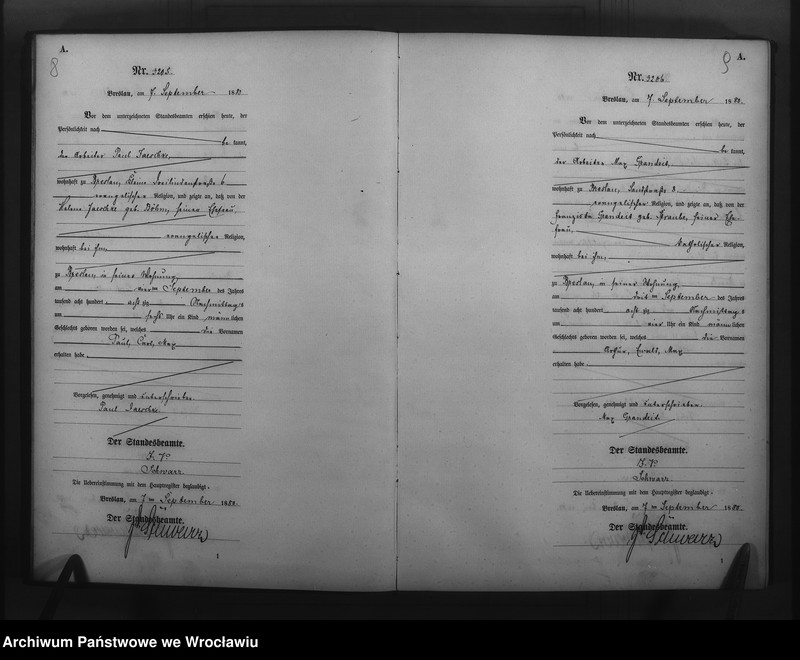 A.
8
Nr. 3205.
Breslau, am 7. September 1880.
Vor dem unterzeichneten Standesbeamten erschien heute, der
Persönlichkeit nach
be kannt,
der Arbeiter Paul Jaeschke,
wohnhaft zu Breslau, Kleine
evangelischer Religion, und zeigte an, daß von der
Helene Jaeschke geb. Böhm, seiner Ehefrau,
evangelischer Religion,
wohnhaft bei ihm,
zu Breslau, in seiner Wohnung,
am vier ten September des Jahres
tausend acht hundert acht zig Nachmittags
um sechs Uhr ein Kind männlichen
Geschlechts geboren worden sei, welches die Vornamen
Paul, Carl, Max
erhalten habe.
Vorgelesen, genehmigt und unterschrieben.
Paul Jaeschke.
Der Standesbeamte.
J. V.
Schwarz.
Die Uebereinstimmung mit dem Hauptregister beglaubigt.
Breslau, am 7 ten September 1880.
Der Standesbeamte.
Schwarz
1
9
A.
Nr. 3206.
Breslau, am 7. September 1880.
Vor dem unterzeichneten Standesbeamten erschien heute, der
Persönlichkeit nach
be kannt,
der Arbeiter Max Grandeit,
wohnhaft zu Breslau,
evangelischer Religion, und zeigte an, daß von der
Franziska Grandeit geb. seiner Ehe
frau,
katholischer Religion,
wohnhaft bei ihm,
zu Breslau, in seiner Wohnung,
am ten September des Jahres
tausend acht hundert acht zig Nachmittags
um vier Uhr ein Kind männlichen
Geschlechts geboren worden sei, welches die Vornamen
Arthur, Ewald, Max
erhalten habe
Vorgelesen, genehmigt und unterschrieben.
Max Grandeit.
Der Standesbeamte.
J. V.
Schwarz.
Die Uebereinstimmung mit dem Hauptregister beglaubigt.
Breslau, am 7 ten September 1880.
Der Standesbeamte.
Schwarz
1
Archiwum Państwowe we Wrocławiu